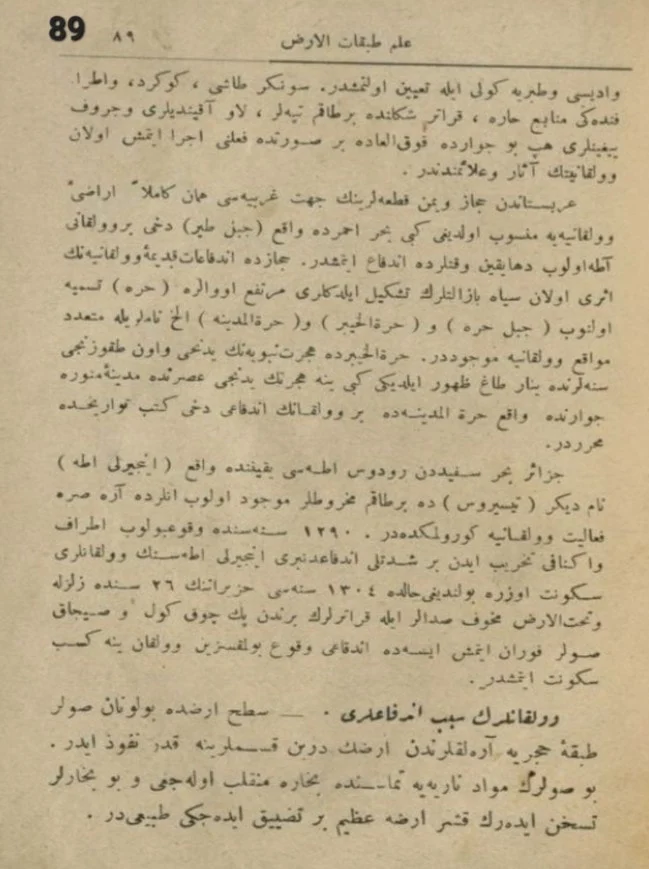 89 ٨٩ علم طبقات الارض
واديسى وطبريه كولى ايله تعيين اولنمشدر. سونكر طاشى ، كوكرد، واطرا
فنده‌كى منابع حاره ، قراتر شكلنده برطاقم تپه‌لر ، لاو آقينديلرى وجروف
ييغينلرى هپ بو جوارده فوق‌العاده بر صورتده فعلنى اجرا ايتمش اولان
وولقانيتك آثار وعلائمندندر.
عربستاندن حجاز ويمن قطعه‌لرينك جهت غربيه‌سى همان كاملاً اراضئ
وولقانيه‌يه منسوب اولديغى كبى بحر احمرده واقع (جبل طير) دخى بروولقانى
آطه‌اولوب دهايقين وقتلرده اندفاع ايتمشدر. حجازده اندفاعات‌قديمهٔ‌وولقانيه‌نك
اثرى اولان سياه بازالتلرك تشكيل ايلدكلرى مرتفع اووالره ( حره ) تسميه
اولنوب ( جبل حره ) و ( حرة‌الخيبر ) و( حرة‌المدينه ) الخ نامريله متعدد
مواقع وولقانيه موجوددر. حرة‌الخيبرده هجرت‌نبويه‌نك يدنجى واون طقوزنجى
سنه‌لرنده ينار طاغ ظهور ايلديكى كبى ينه هجرتك يدنجى عصرنده مدينهٔ‌منوره
جوارنده واقع حرة المدينه‌ده بر وولقانك اندفاعى دخى كتب تواريخده
محرردر.
جزائر بحر سفيددن رودوس اطه‌سى بقيفنده واقع ( اينجيرلى اطه )
نام ديكر ( تيسيروس ) ده برطاقم مخروطلر موجود اولوب انلرده آره صره
فعاليت وولقانيه كورولمكده‌در . ١٢٩٠ سنه‌سنده وقوعبولوب اطراف
واكنافى تخريب ايدن بر شدتلى اندفاعدنبرى اينجيرلى اطه‌سنك وولقانلرى
سكونت اوزره بولنديغى‌حالده ١٣٠٤ سنه‌سى حزيراننك ٢٦ سنده زلزله
وتحت‌الارض مخوف صدالر ايله قراترلرك برندن پك چوق كول و صيجاق
صولر فوران ايتمش ايسه‌ده اندفاعى وقوع بولمقسزين وولقان ينه كسب
سكونت ايتمشدر.
وولقانلرك سبب اندفاعلرى . — سطح ارضده بولونان صولر
طبقهٔ حجريه آره‌لقلرندن ارضك درين قسملرينه قدر نفوذ ايدر .
بو صولرك مواد ناريه‌يه تماسنده بخاره منقلب اوله‌جغى و بو بخارلر
تسخن ايده‌رك قشر ارضه عظيم بر تضييق ايده‌جكى طبيعى‌در .